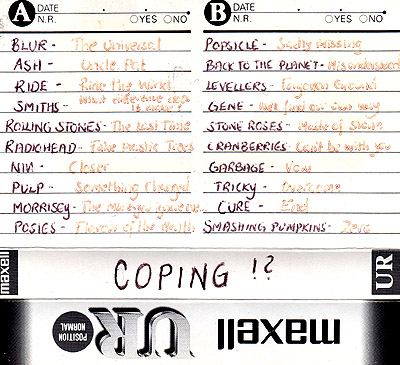 A DATE
N.R. YES NO
BLUR - The Universal
ASH - Uncle Pat
RIDE - Ride the Wind
SMITHS - What difference does it make?
ROLLING STONES - The Last Time
RADIOHEAD - Fake Plastic Trees
NIN - Closer
PULP - Something Changed
MORRISSEY - The more you ignore me...
POSIES - Flavor of the Month
B DATE
N.R. YES NO
POPSICLE - Sadly missing
BACK TO THE PLANET - Misunderstood
LEVELLERS - Forgotten Ground
GENE - We'll find our own way
STONE ROSES - Made of Stone
CRANBERRIES - Can't be with you
GARBAGE - Vow
TRICKY - Overcome
CURE - End
SMASHING PUMPKINS - Zero
maxell COPING !? UR
POSITION NORMAL UR maxell